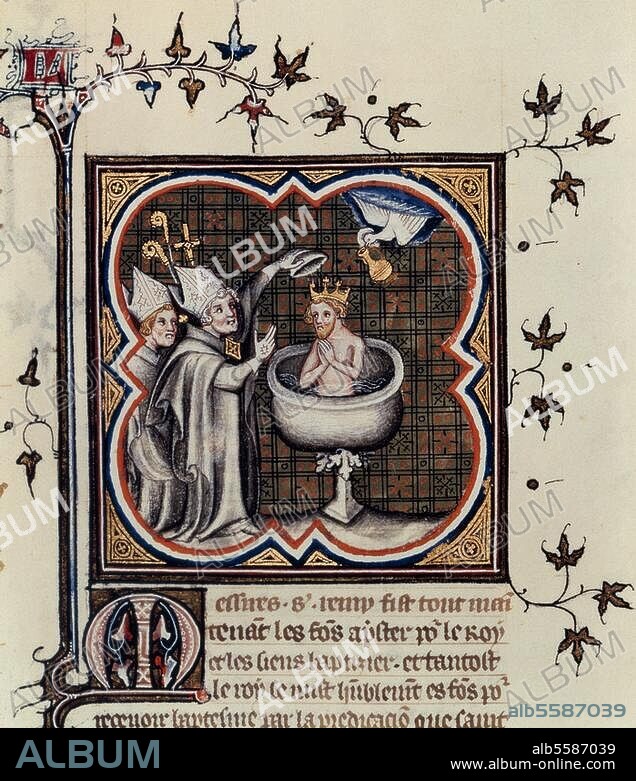 Messires . s'. remy fist tout main
tenant les fons aprster po' le Roy
et les siens baptizier . et tantost
le roy se mist humblement es fons po'
recevoir baptesme par la predicacion que saint
alb5587039
ALBUM
alb5587039
www.album-online.com
ALBUM